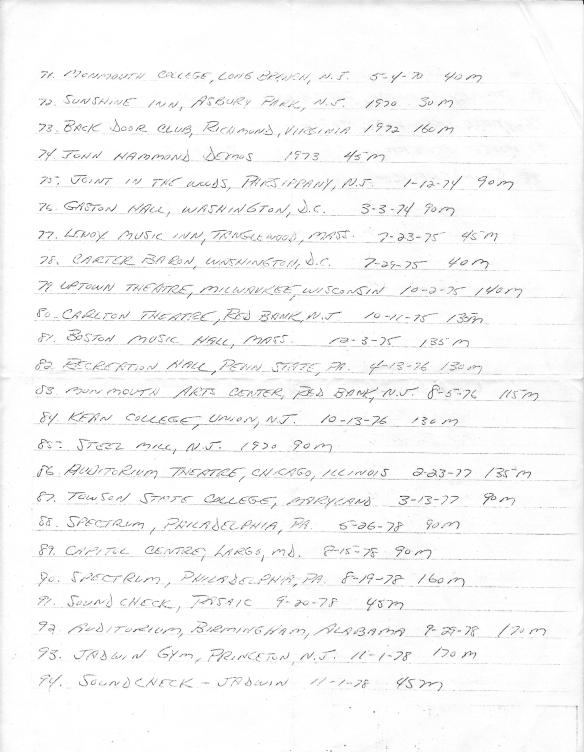 71. MONMOUTH COLLEGE, LONG BRANCH, N.J. 5-4-70 40M
72. SUNSHINE INN, ASBURY PARK, N.J. 1970 30M
73. BACK DOOR CLUB, RICHMOND, VIRGINIA 1972 160M
74. JOHN HAMMOND DEMOS 1973 45M
75. JOINT IN THE WOODS, PARSIPPANY, N.J. 1-12-74 90M
76. GASTON HALL, WASHINGTON, D.C. 3-3-74 90M
77. LENOX MUSIC INN, TANGLEWOOD, MASS. 7-23-75 45M
78. CARTER BARON, WASHINGTON, D.C. 7-29-75 40M
79. UPTOWN THEATRE, MILWAUKEE, WISCONSIN 10-2-75 140M
80. CARLTON THEATRE, RED BANK, N.J 10-11-75 135M
81. BOSTON MUSIC HALL, MASS. 12-3-75 135M
82. RECREATION HALL, PENN STATE, PA. 4-13-76 130M
83. MONMOUTH ARTS CENTER, RED BANK, N.J. 8-5-76 115M
84. KEAN COLLEGE, UNION, N.J. 10-13-76 130M
85. STEEL MILL, N.J. 1970 90M
86. AUDITORIUM THEATRE, CHICAGO, ILLINOIS 2-23-77 135M
87. TOWSON STATE COLLEGE, MARYLAND 3-13-77 90M
88. SPECTRUM, PHILADELPHIA, PA. 5-26-78 90M
89. CAPITOL CENTRE, LARGO, MD. 8-15-78 90M
90. SPECTRUM, PHILADELPHIA, PA. 8-19-78 160M
91. SOUNDCHECK, PASAIC 9-20-78 45M
92. AUDITORIUM, BIRMINGHAM, ALABAMA 9-29-78 170M
93. JADWIN GYM, PRINCETON, N.J. 11-1-78 170M
94. SOUNDCHECK - JADWIN 11-1-78 45M